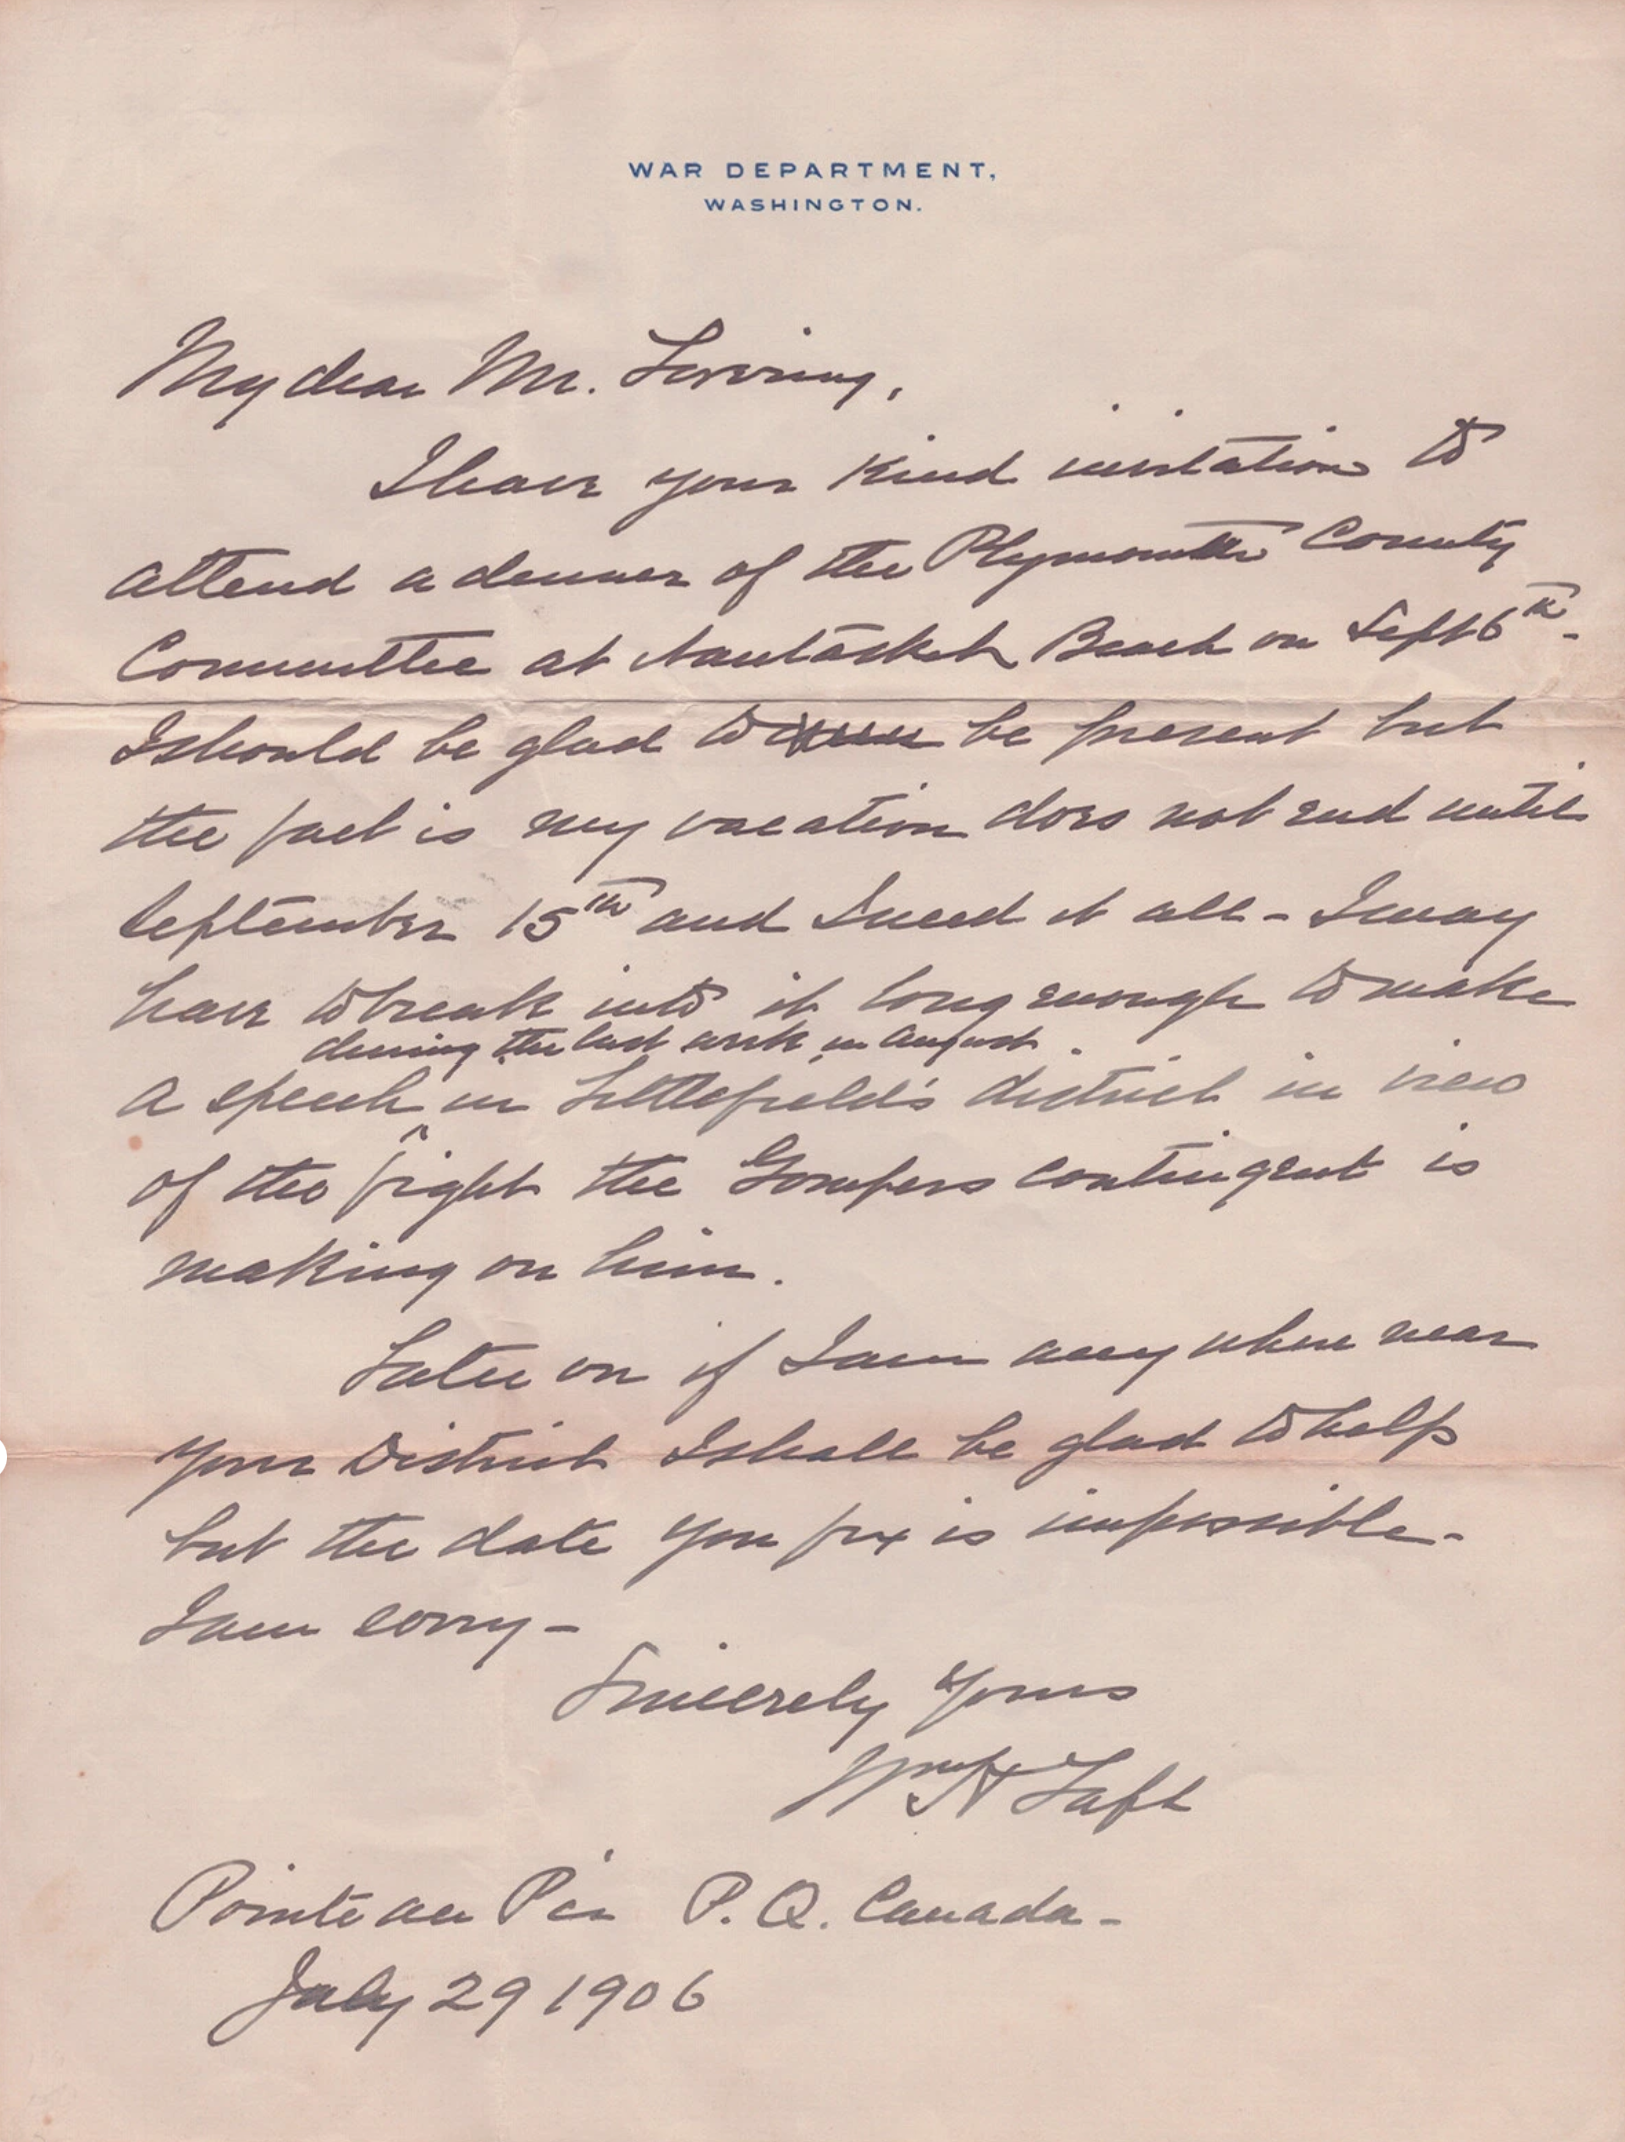 WAR DEPARTMENT,
WASHINGTON.
My dear Mr. Lovering,
I have your kind invitation to
attend a dinner of the Plymouth County
Committee at Nantasket Beach on Sept 6th.
I should be glad to be present but
the fact is my vacation does not end until
September 15th and I need it all - I may
have to break into it long enough to make
during the last week in August
a speech ^ in Littlefield's district in view
of the fight the Gompers contingent is
making on him.
Later on if I am any where near
your District I shall be glad to help
but the date you fix is impossible -
I am sorry -
Sincerely Yours
Wm H Taft
Pointe au Pic P. Q. Canada -
July 29 1906